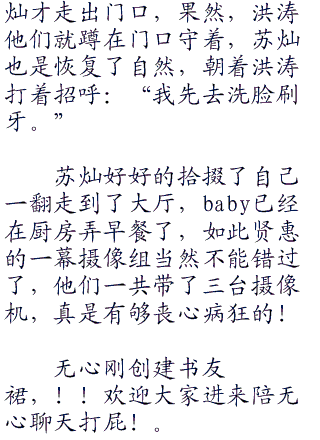 灿才走出门口，果然，洪涛
他们就蹲在门口守着，苏灿
也是恢复了自然，朝着洪涛
打着招呼：“我先去洗脸刷
牙。”
苏灿好好的拾掇了自己
一翻走到了大厅，baby已经
在厨房弄早餐了，如此贤惠
的一幕摄像组当然不能错过
了，他们一共带了三台摄像
机，真是有够丧心病狂的！
无心刚创建书友
裙，！！欢迎大家进来陪无
心聊天打屁！。